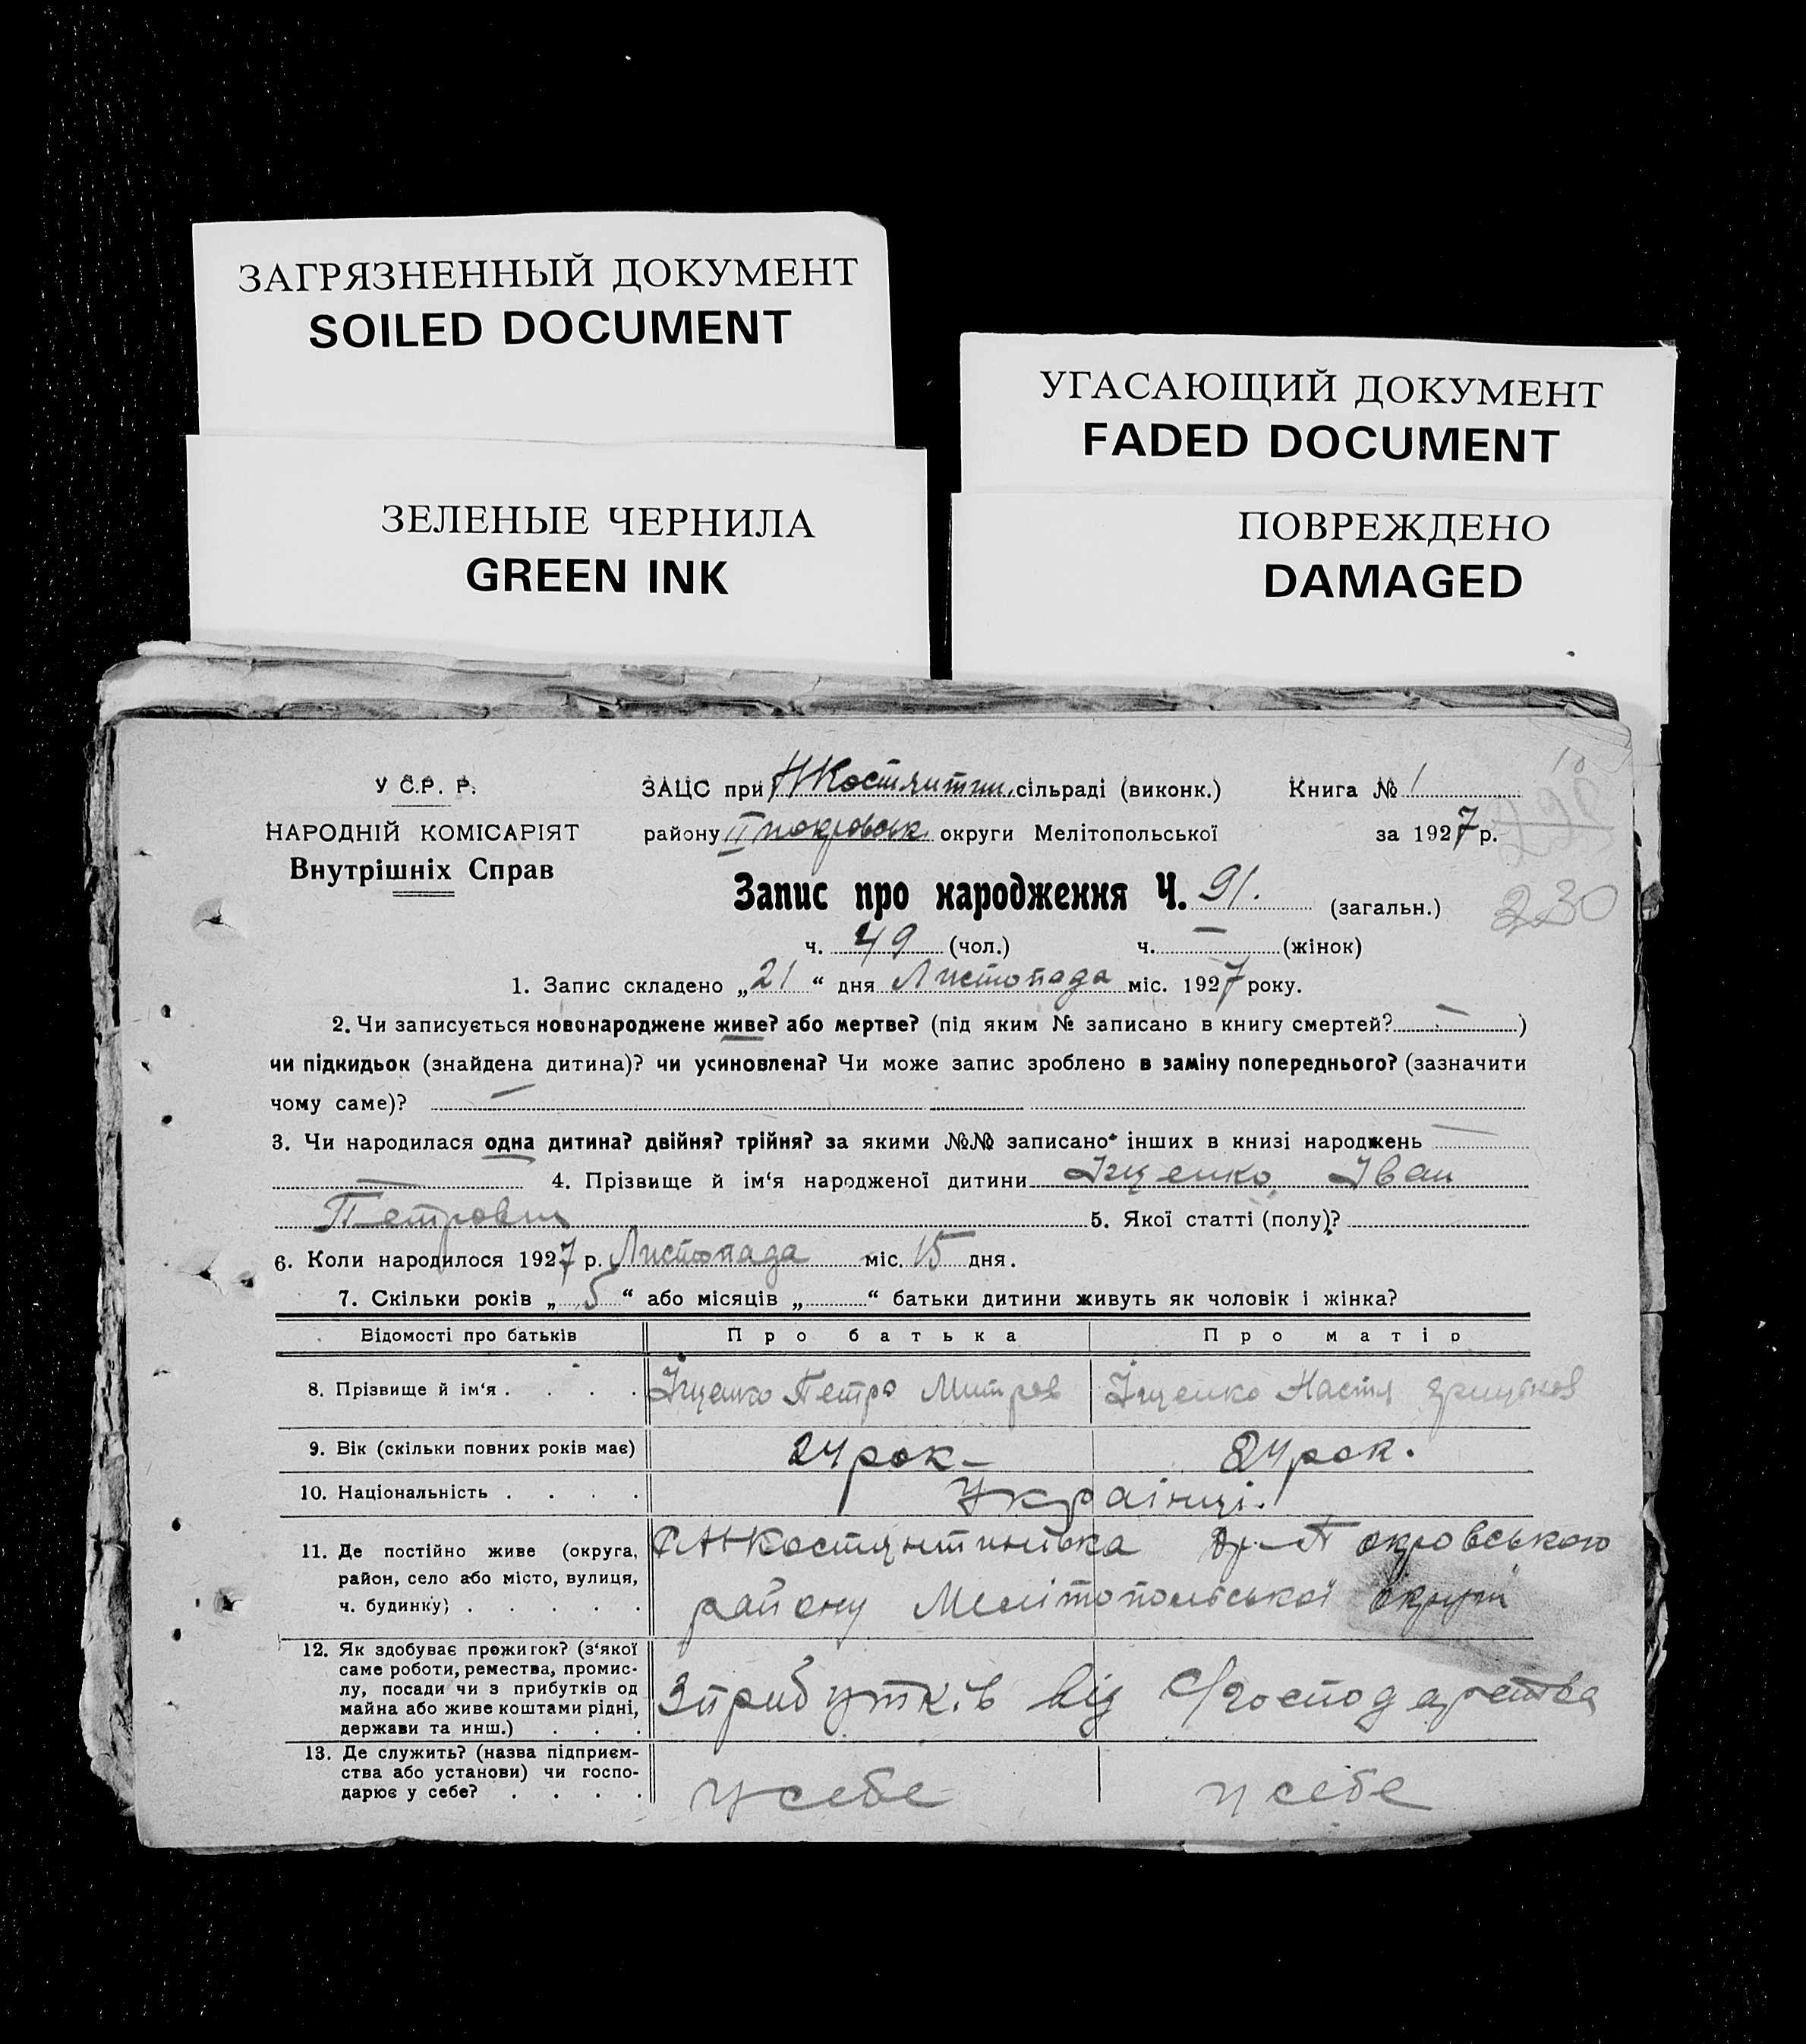 ЗАГРЯЗНЕННЫЙ ДОКУМЕНТ
SOILED DOCUMENT
УГАСАЮЩИЙ ДОКУМЕНТ
FADED DOCUMENT
ЗЕЛЕНЫЕ ЧЕРНИЛА
GREEN INK
ПОВРЕЖДЕНО
DAMAGED
У С.Р. Р.
НАРОДНІЙ КОМІСАРІЯТ
Внутрішніх Справ
ЗАЦС при НКостянтин. сільраді (виконк.) Книга № 1
району покровськ. округи Мелітопольської за 1927 р.
Запис про народження Ч. 91. (загальн.)
230
ч. 49 (чол.) ч. — (жінок)
1. Запис складено „21“ дня Листопада міс. 1927 року.
2. Чи записується новонароджене живе? або мертве? (під яким № записано в книгу смертей? — )
чи підкидьок (знайдена дитина)? чи усиновлена? Чи може запис зроблено в заміну попереднього? (зазначити
чому саме)? —
3. Чи народилася одна дитина? двійня? трійня? за якими №№ записано інших в книзі народжень —
— 4. Прізвище й ім‘я народженої дитини Іщенко Іван
Петрович 5. Якої статті (полу)?
6. Коли народилося 1927 р. Листопада міс. 15 дня.
7. Скільки років „5“ або місяців „ “ батьки дитини живуть як чоловік і жінка?
Відомості про батьків Про батька Про матір
8. Прізвище й ім‘я . . . . Іщенко Петро Митров Іщенко Настя
9. Вік (скільки повних років має) 24 рок— 24 рок.
10. Національність . . . . Українці.
11. Де постійно живе (округа,
район, село або місто, вулиця,
ч. будинку) . . . . .
С НКостянтинівка Покровського
району Мелітопольської округи
12. Як здобуває прожиток? (з‘якої
саме роботи, ремества, промис-
лу, посади чи з прибутків од
майна або живе коштами рідні,
держави та инш.) . . .
З прибутків від с/господарства
13. Де служить? (назва підприєм-
ства або установи) чи госпо-
дарює у себе? . . . .
у себе у себе